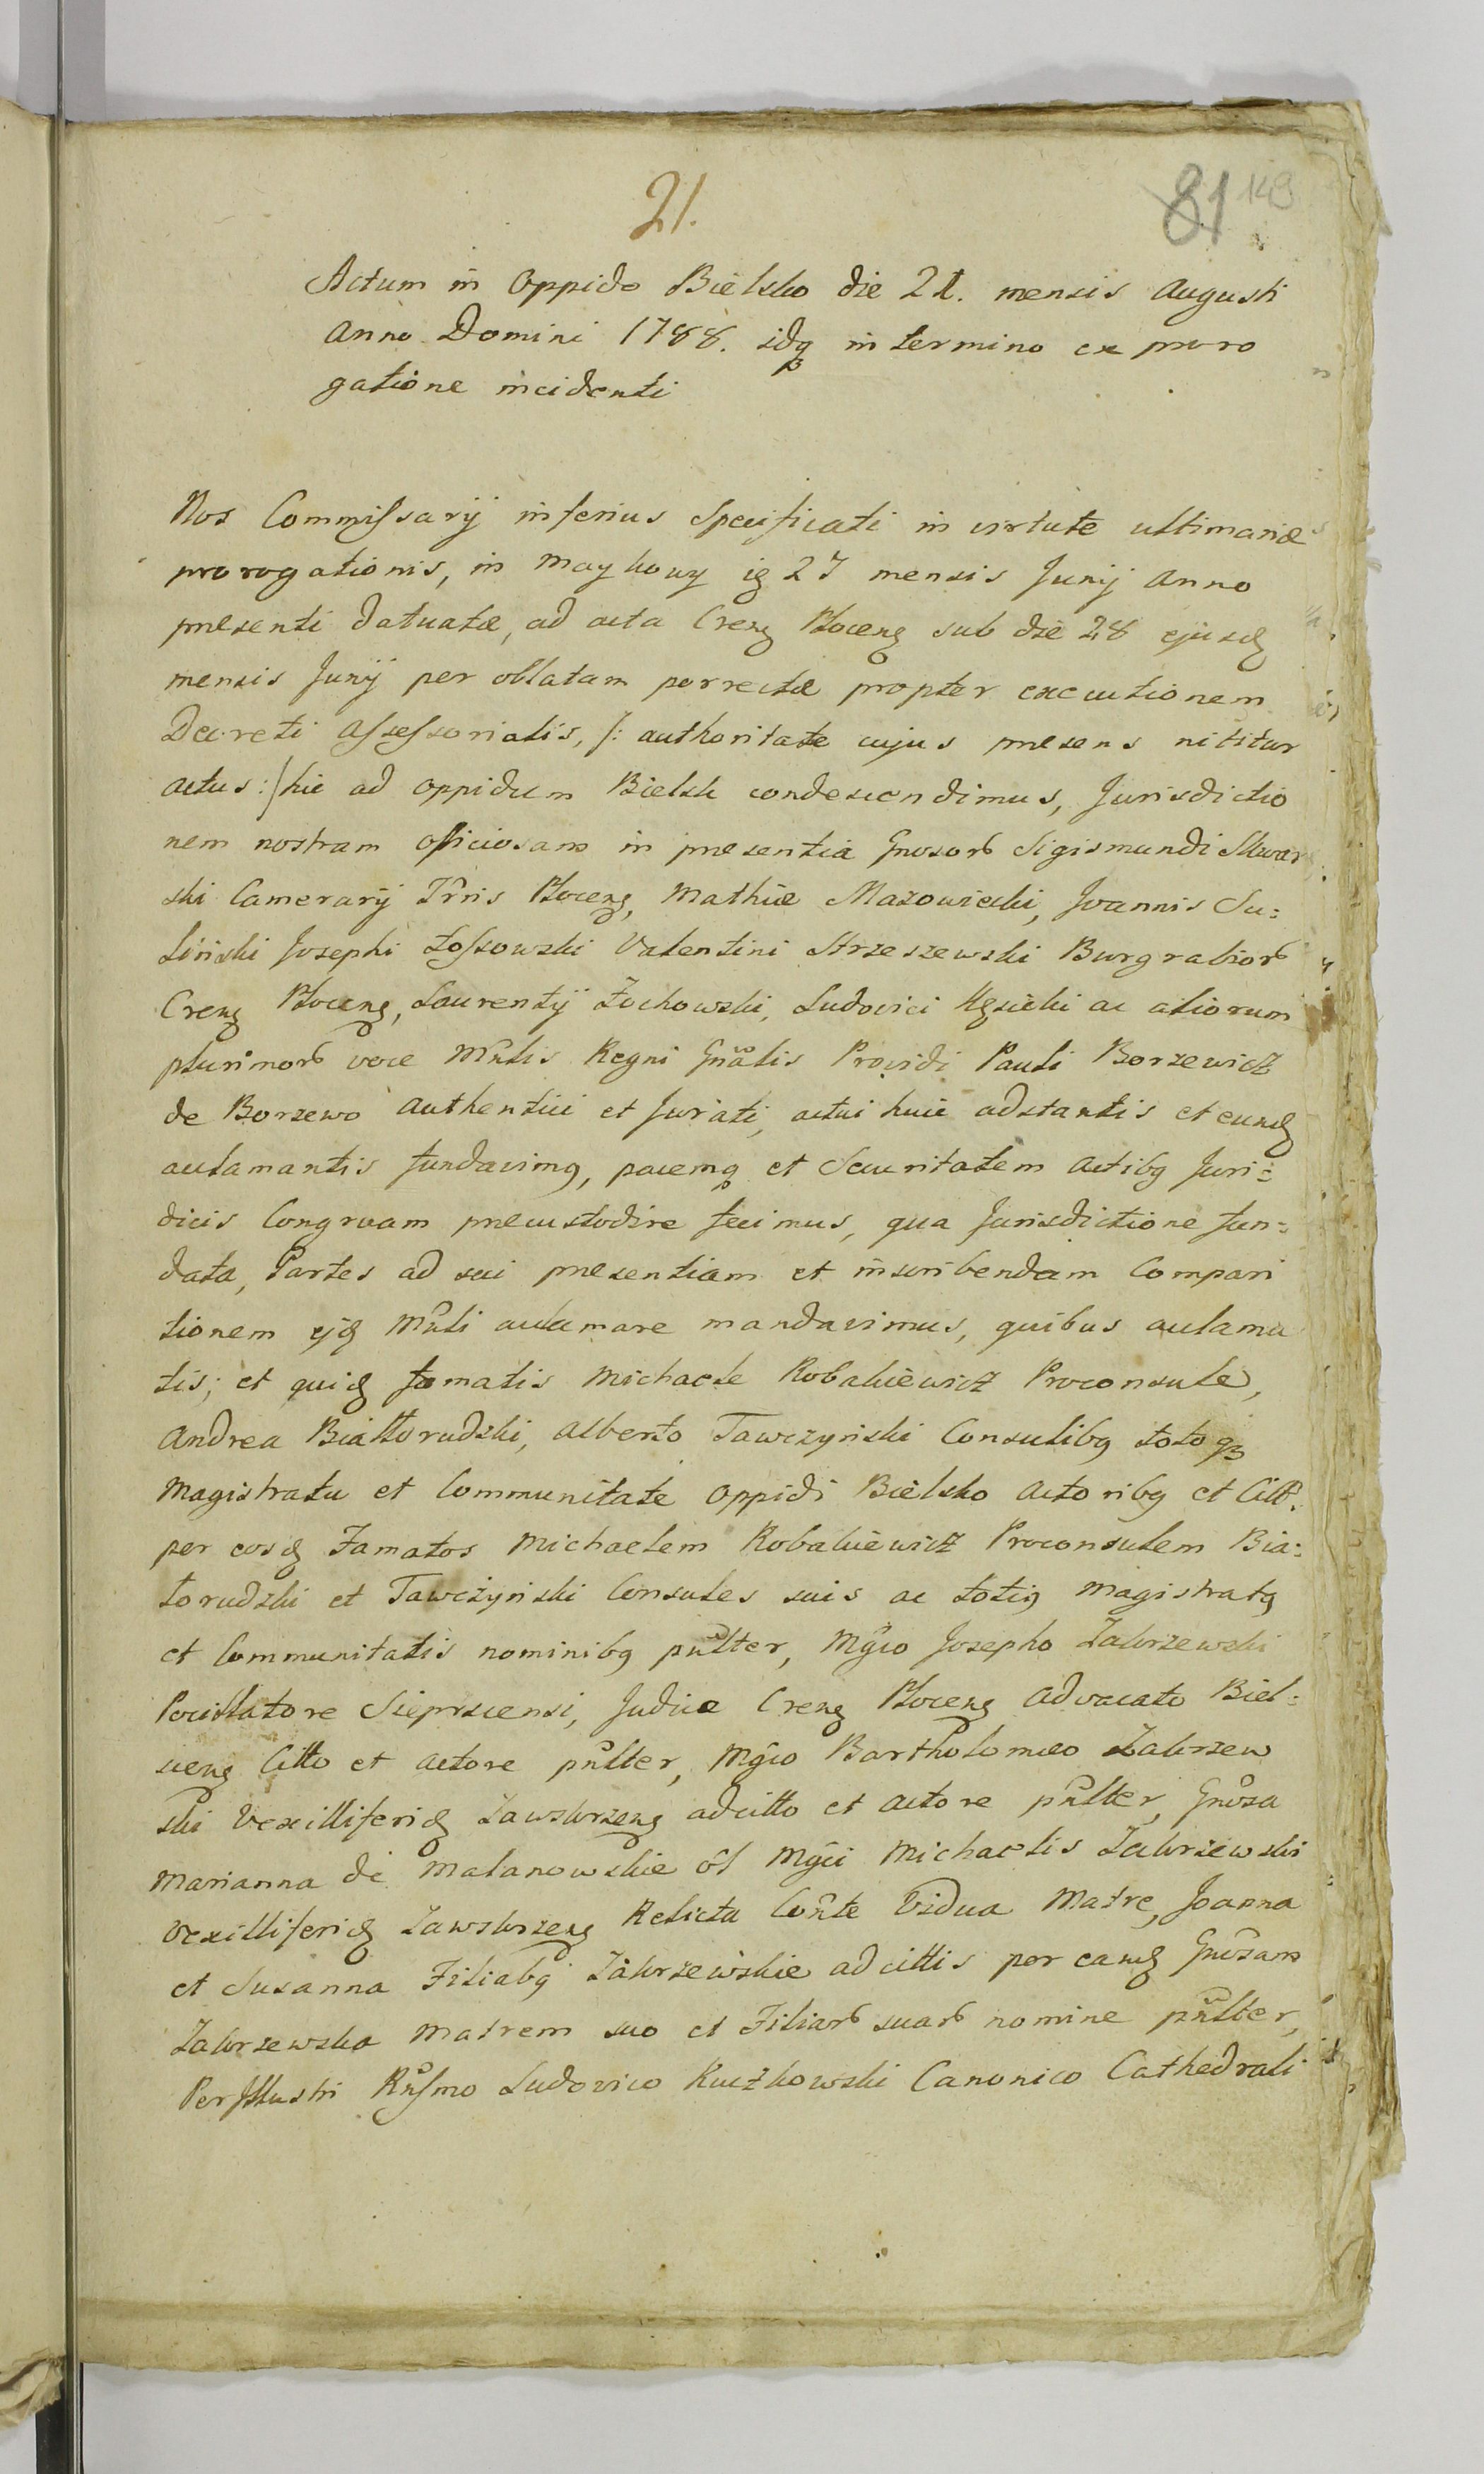 21.
81 149
Actum in Oppido Bielsko die 21. mensis Augusti
Anno Domini 1788. idq in termino ex proro
gatione incidenti
Nos Commissarij inferius Specificati in virtute ultimariæ
prorogationis, in Maykowy ig 27 mensis Junij Anno
præsenti datuatæ, ad acta Creng Ploceng sub die 28 ejusdg
mensis Junij per oblatam porrectæ propter executionem
Decreti Assessorialis, /: authoritate cujus præsens nititur
actus :/ hic ad Oppidum Bielsk condescendimus, Jurisdictio
nem nostram officiosam in præsentia Gnosorb Sigismundi Skwar
ski Camerarij Trris Ploceng, Mathiæ Mazowiecki, Joannis Su:
liński Josephi Łossowski Valentini Strzeszewski Burgrabiorb
Creng Ploceng, Laurentij Żochowski, Ludovici Kęsicki ac aliorum
plurimorb voce Mnlis Regni Gnalis Providi Pauli Borzewicz
de Borzewo Authentici et Jurati, actui huic adstantis et eundg
aclamantis fundavimg, pacemq et Securitatem Actibg Juri:
dicis Congruam præcustodire fecimus, qua Jurisdictione fun:
data, Partes ad sui præsentiam et inscribendam Compari
tionem ejdg Mnli aclamare mandavimus, quibus aclama
tis; et quidg famatis Michaele Robakiewicz Proconsule,
Andrea Białłorudzki, Alberto Tawczyński Consulibg totoq
Magistratu et Communitate Oppidi Bielsko Actoribg et Citt.
per eosdg Famatos Michaelem Robakiewicz Proconsulem Bia:
łorudzki et Tawczyński Consules suis ac totig Magistratg
et Communitatis nominibg pnlter, Mgco Josepho Zakrzewski
Pocillatore Sieprscensi, Judice Creng Ploceng Advocato Biel:
sceng Citto et Actore pnlter, Mgco Bartholomæo Zakrzew
ski Vexilliferidg Zawskrzeng adcitto et Actore pnlter, Gnosa
Marianna de Malanowskie ol Mgci Michaelis Zakrzewski
Vexilliferidg Zawskrzeng Relicta Conte Vidua Matre, Joanna
et Susanna Filiabg Zakrzewskie adcittis per eandg Gnosam
Zakrzewska Matrem suo et Filiarb suarb nomine pnlter,
Perjllustri Rnssmo Ludovico Kuczkowski Canonico Cathedrali